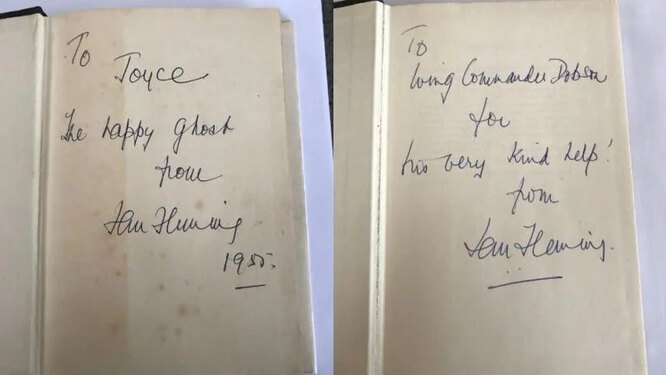 To
Joyce
The happy ghost
from
Ian Fleming
1955.
To
Wing Commander Dobson
for
his very kind help!
from
Ian Fleming.